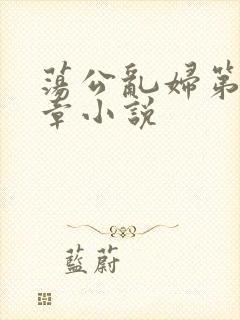 蕩公亂婦第
章小説
藍蔚